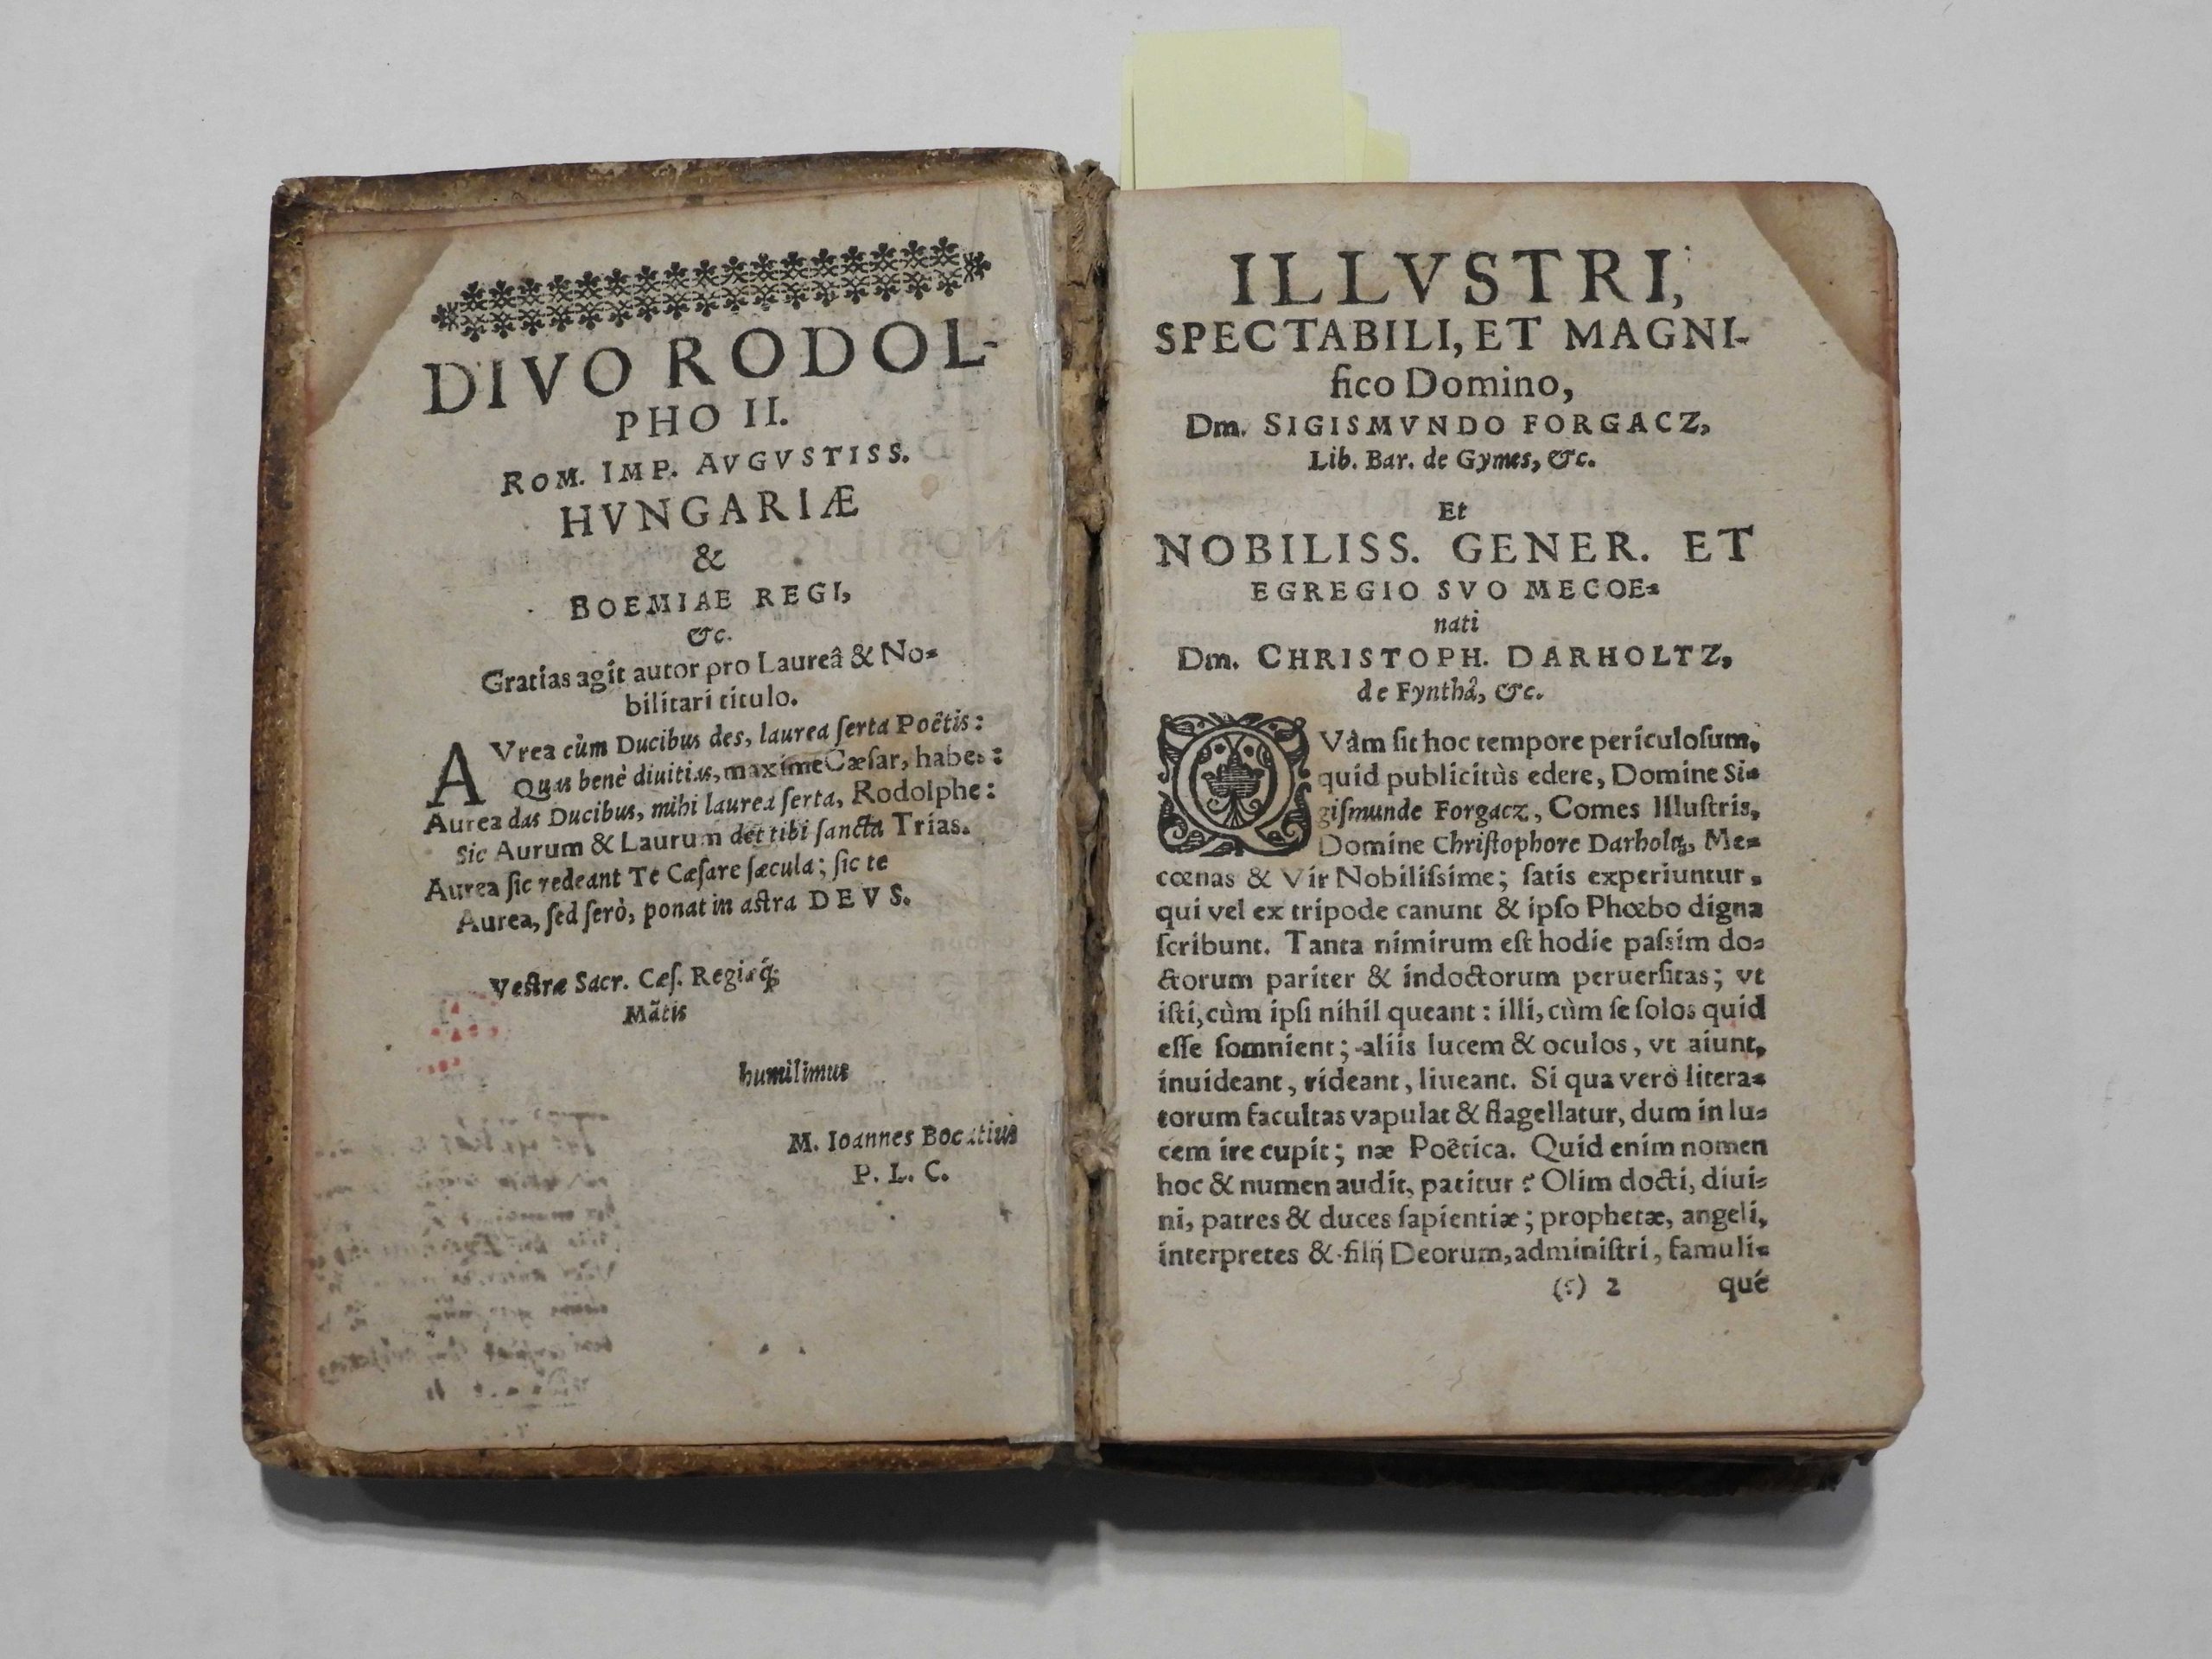 DIVO RODOL-
PHO II.
ROM. IMP. AVGVSTISS.
HVNGARIÆ
&
BOEMIAE REGI,
&c.
Gratias agit autor pro Laureâ & No-
bilitari titulo.
AVrea cùm Ducibus des, laurea ſerta Poëtis:
Quas benè diuitias, maxime Cæſar, habes:
Aurea das Ducibus, mihi laurea ſerta, Rodolphe:
Sic Aurum & Laurum det tibi ſancta Trias.
Aurea ſic redeant Te Cæſare ſæcula; ſic te
Aurea, ſed ſerò, ponat in aſtra DEVS.
Veſtræ Sacr. Cæſ. Regiæq́;
Mãtis
humilimus
M. Ioannes Bocatius
P. L. C.
ILLVSTRI,
SPECTABILI, ET MAGNI-
fico Domino,
Dm. SIGISMVNDO FORGACZ,
Lib. Bar. de Gymes, &c.
Et
NOBILISS. GENER. ET
EGREGIO SVO MECOE-
nati
Dm. CHRISTOPH. DARHOLTZ,
de Fynthâ, &c.
QVàm ſit hoc tempore periculoſum,
quid publicitùs edere, Domine Si-
giſmunde Forgacz, Comes Illuſtris,
Domine Chriſtophore Darholtz, Me-
cœnas & Vir Nobiliſsime; ſatis experiuntur,
qui vel ex tripode canunt & ipſo Phœbo digna
ſcribunt. Tanta nimirum eſt hodie paſsim do-
ctorum pariter & indoctorum peruerſitas; vt
iſti, cùm ipſi nihil queant: illi, cùm ſe ſolos quid
eſſe ſomnient; aliis lucem & oculos, vt aiunt,
inuideant, rideant, liueant. Si qua verò litera-
torum facultas vapulat & flagellatur, dum in lu-
cem ire cupit; næ Poëtica. Quid enim nomen
hoc & numen audit, patitur? Olim docti, diui-
ni, patres & duces ſapientiæ; prophetæ, angeli,
interpretes & filij Deorum, adminiſtri, famuli-
(:) 2 qué